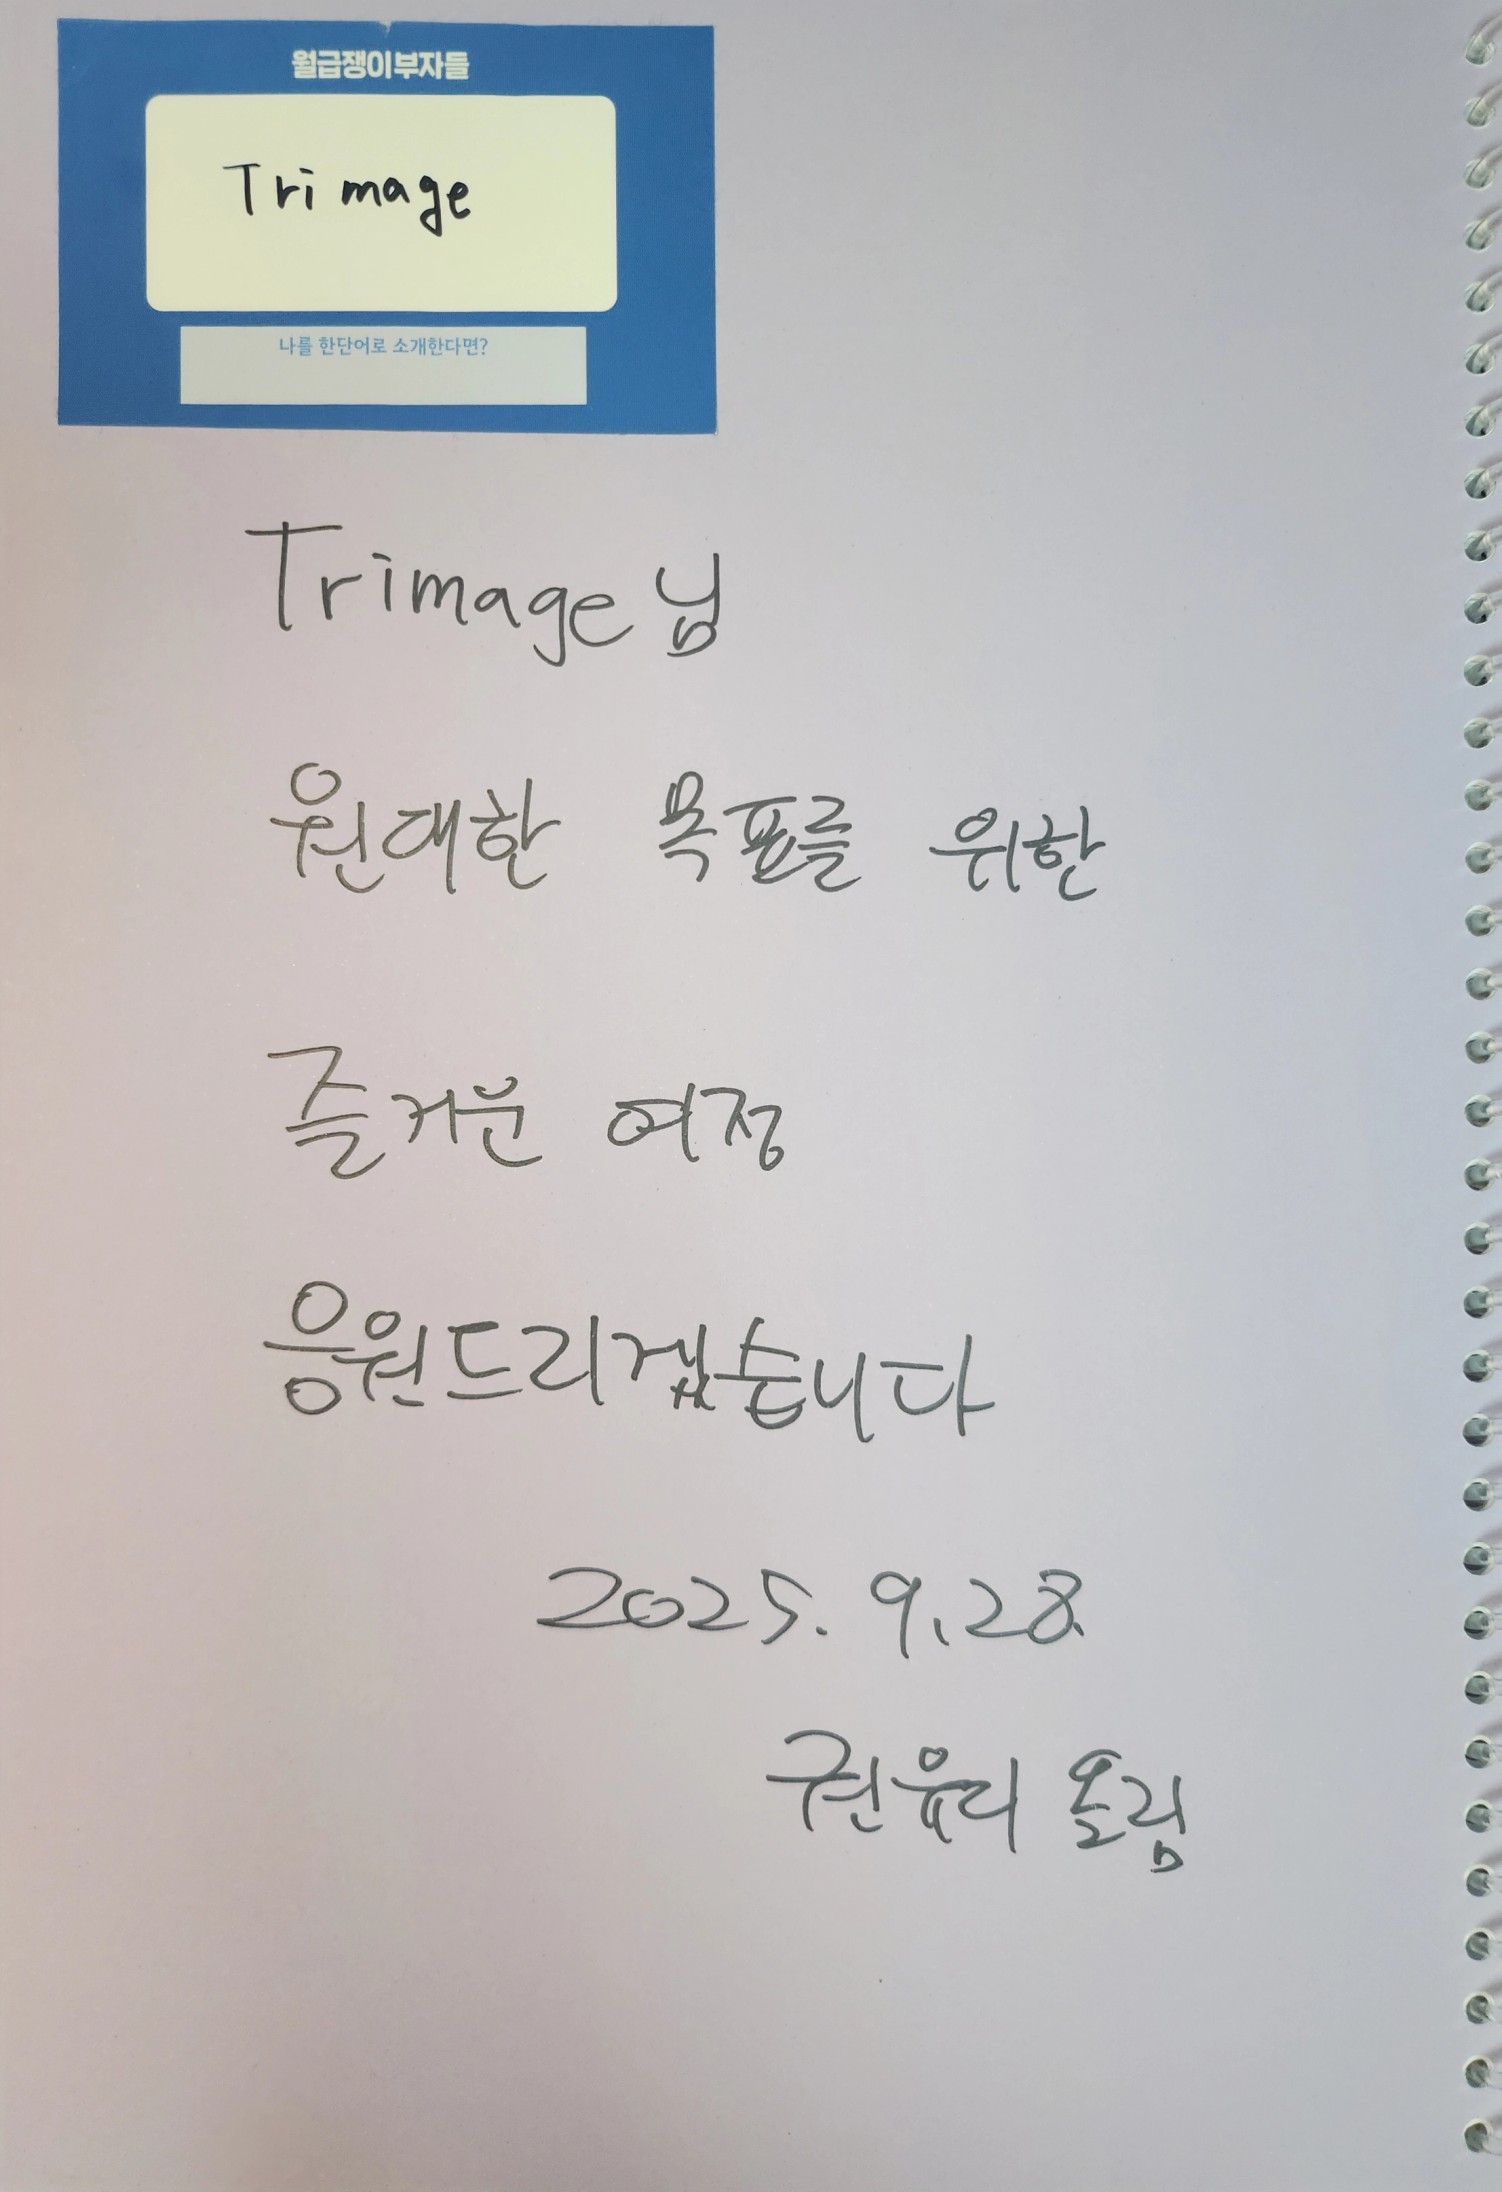 월급쟁이부자들
Trimage
나를 한단어로 소개한다면?
Trimage님
원대한 목표를 위한
즐거운 여정
응원드리겠습니다
2025. 9. 28.
권유디 올림